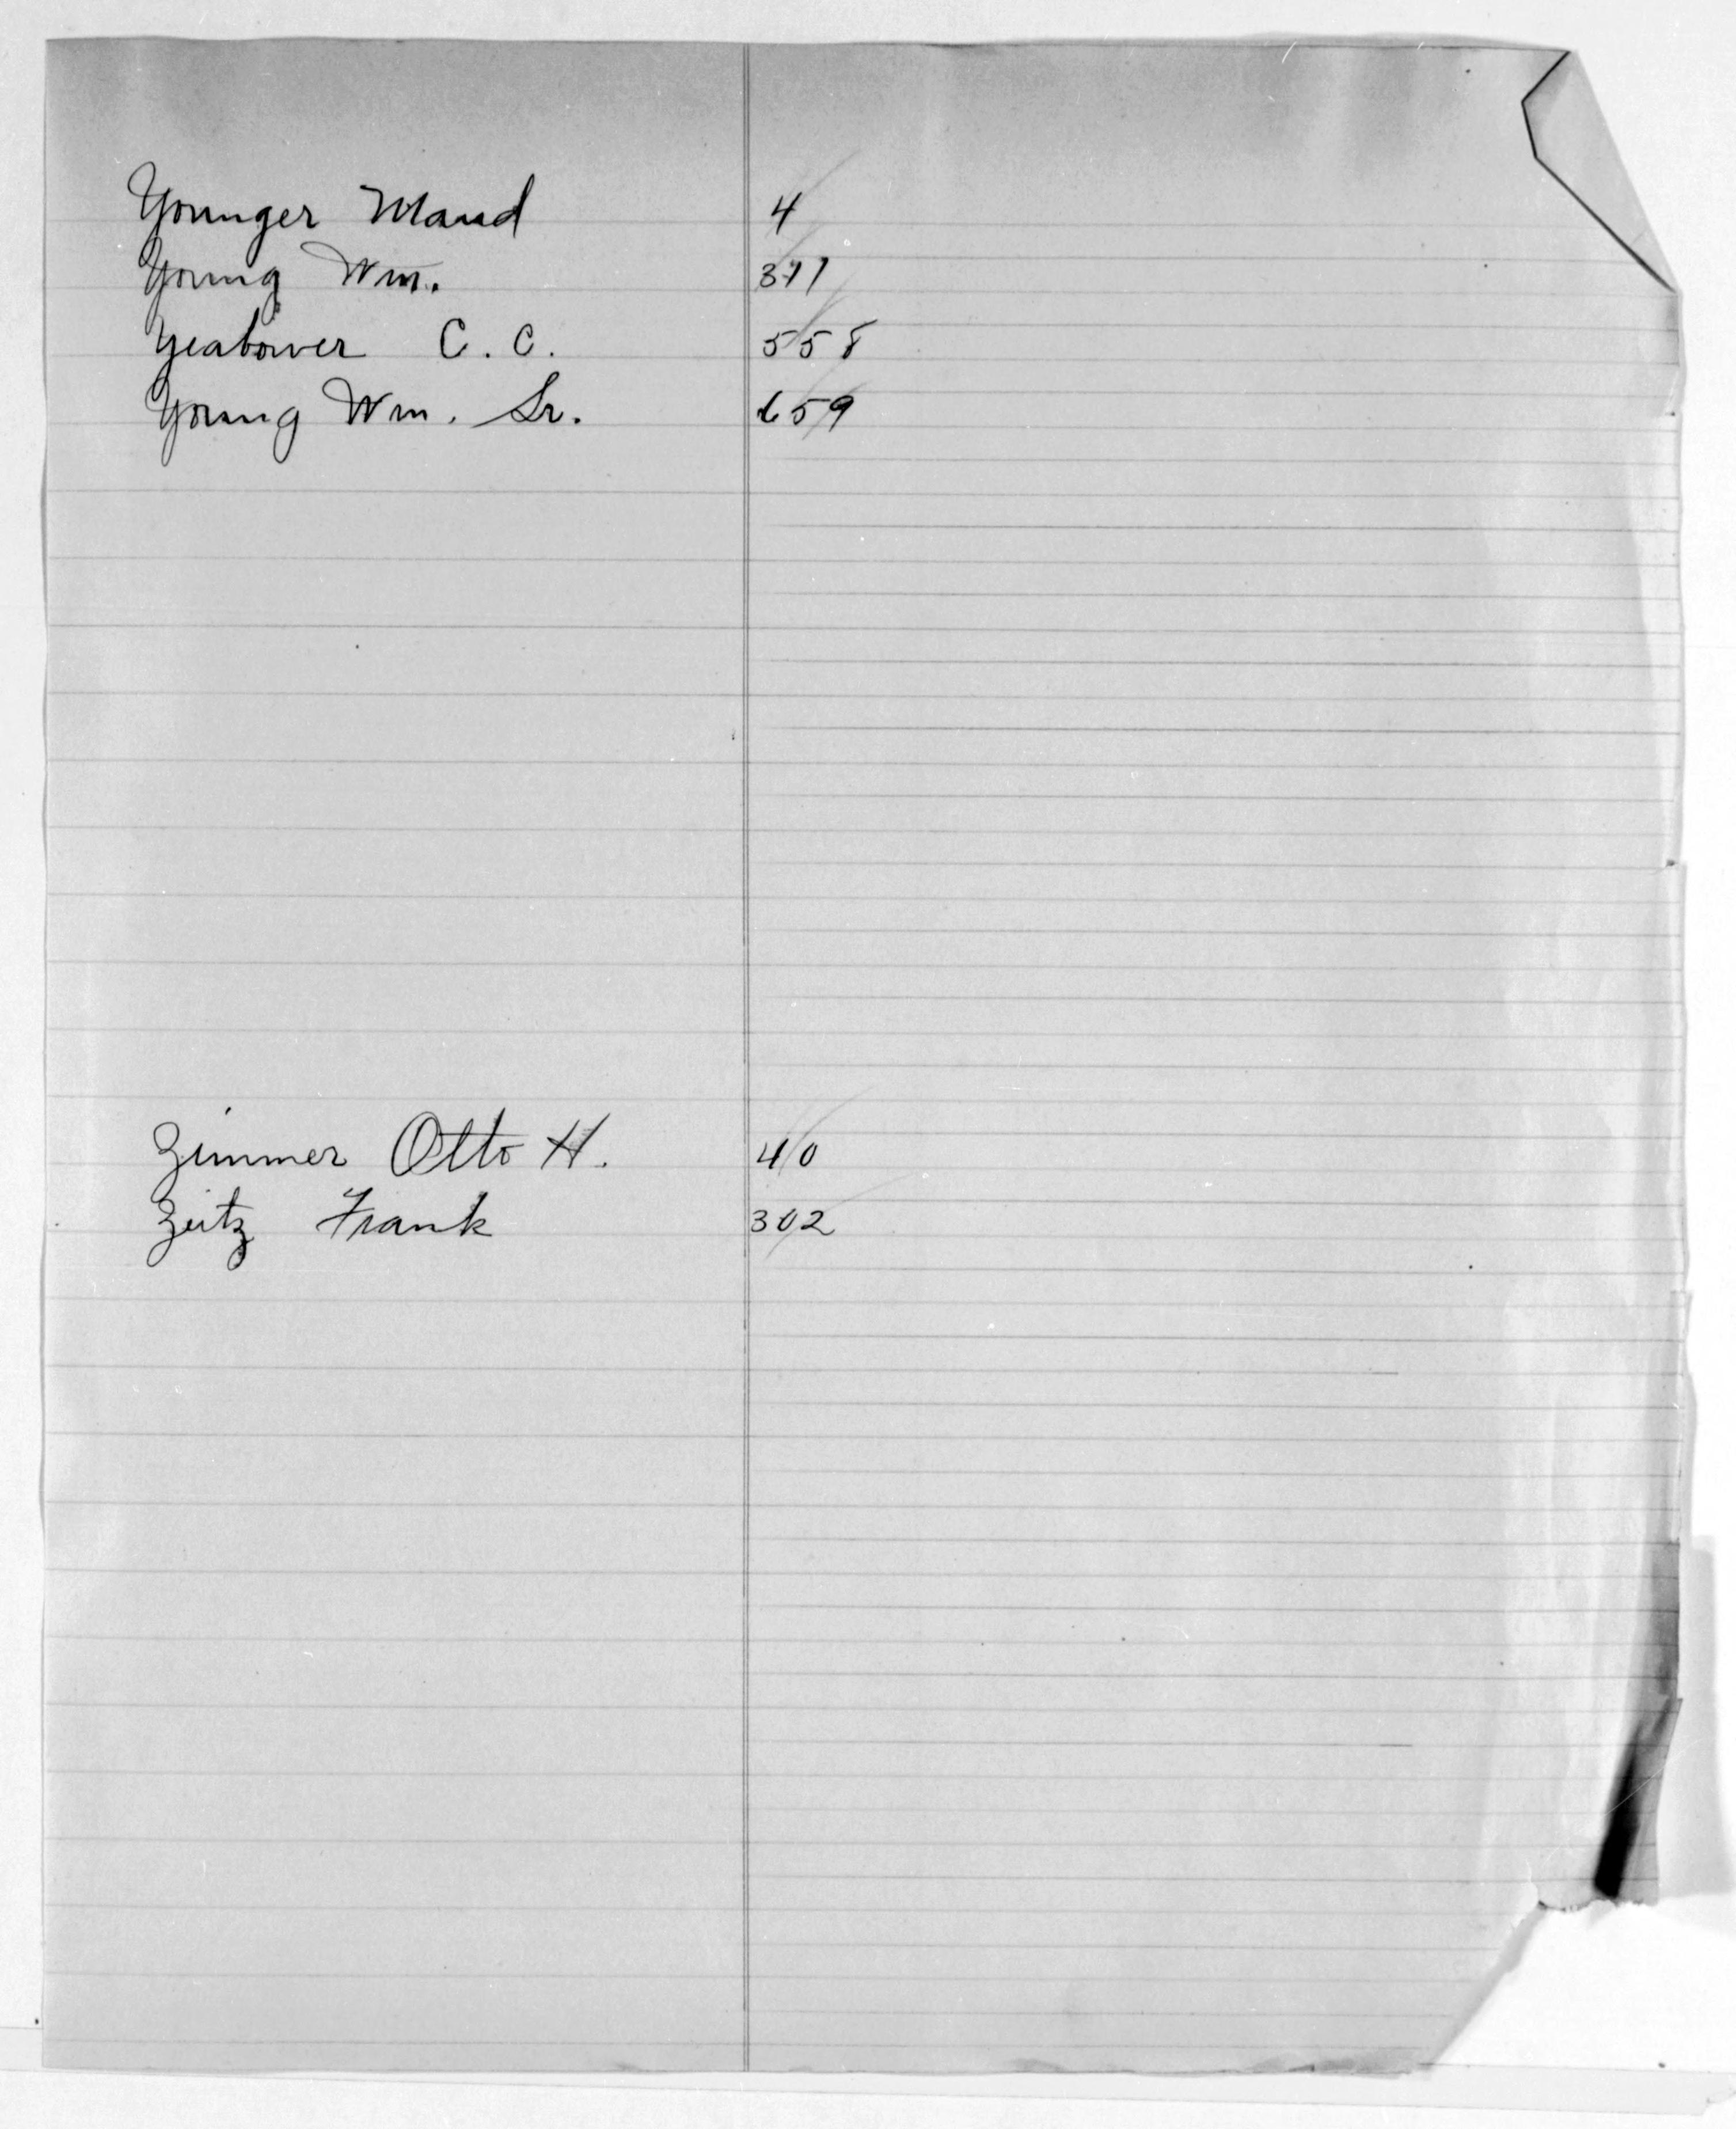 Younger Maud 4
Young Wm. 371
Yeabower C. C. 558
Young Wm. Sr. 659
Zimmer Otto H. 40
Zeitz Frank 302